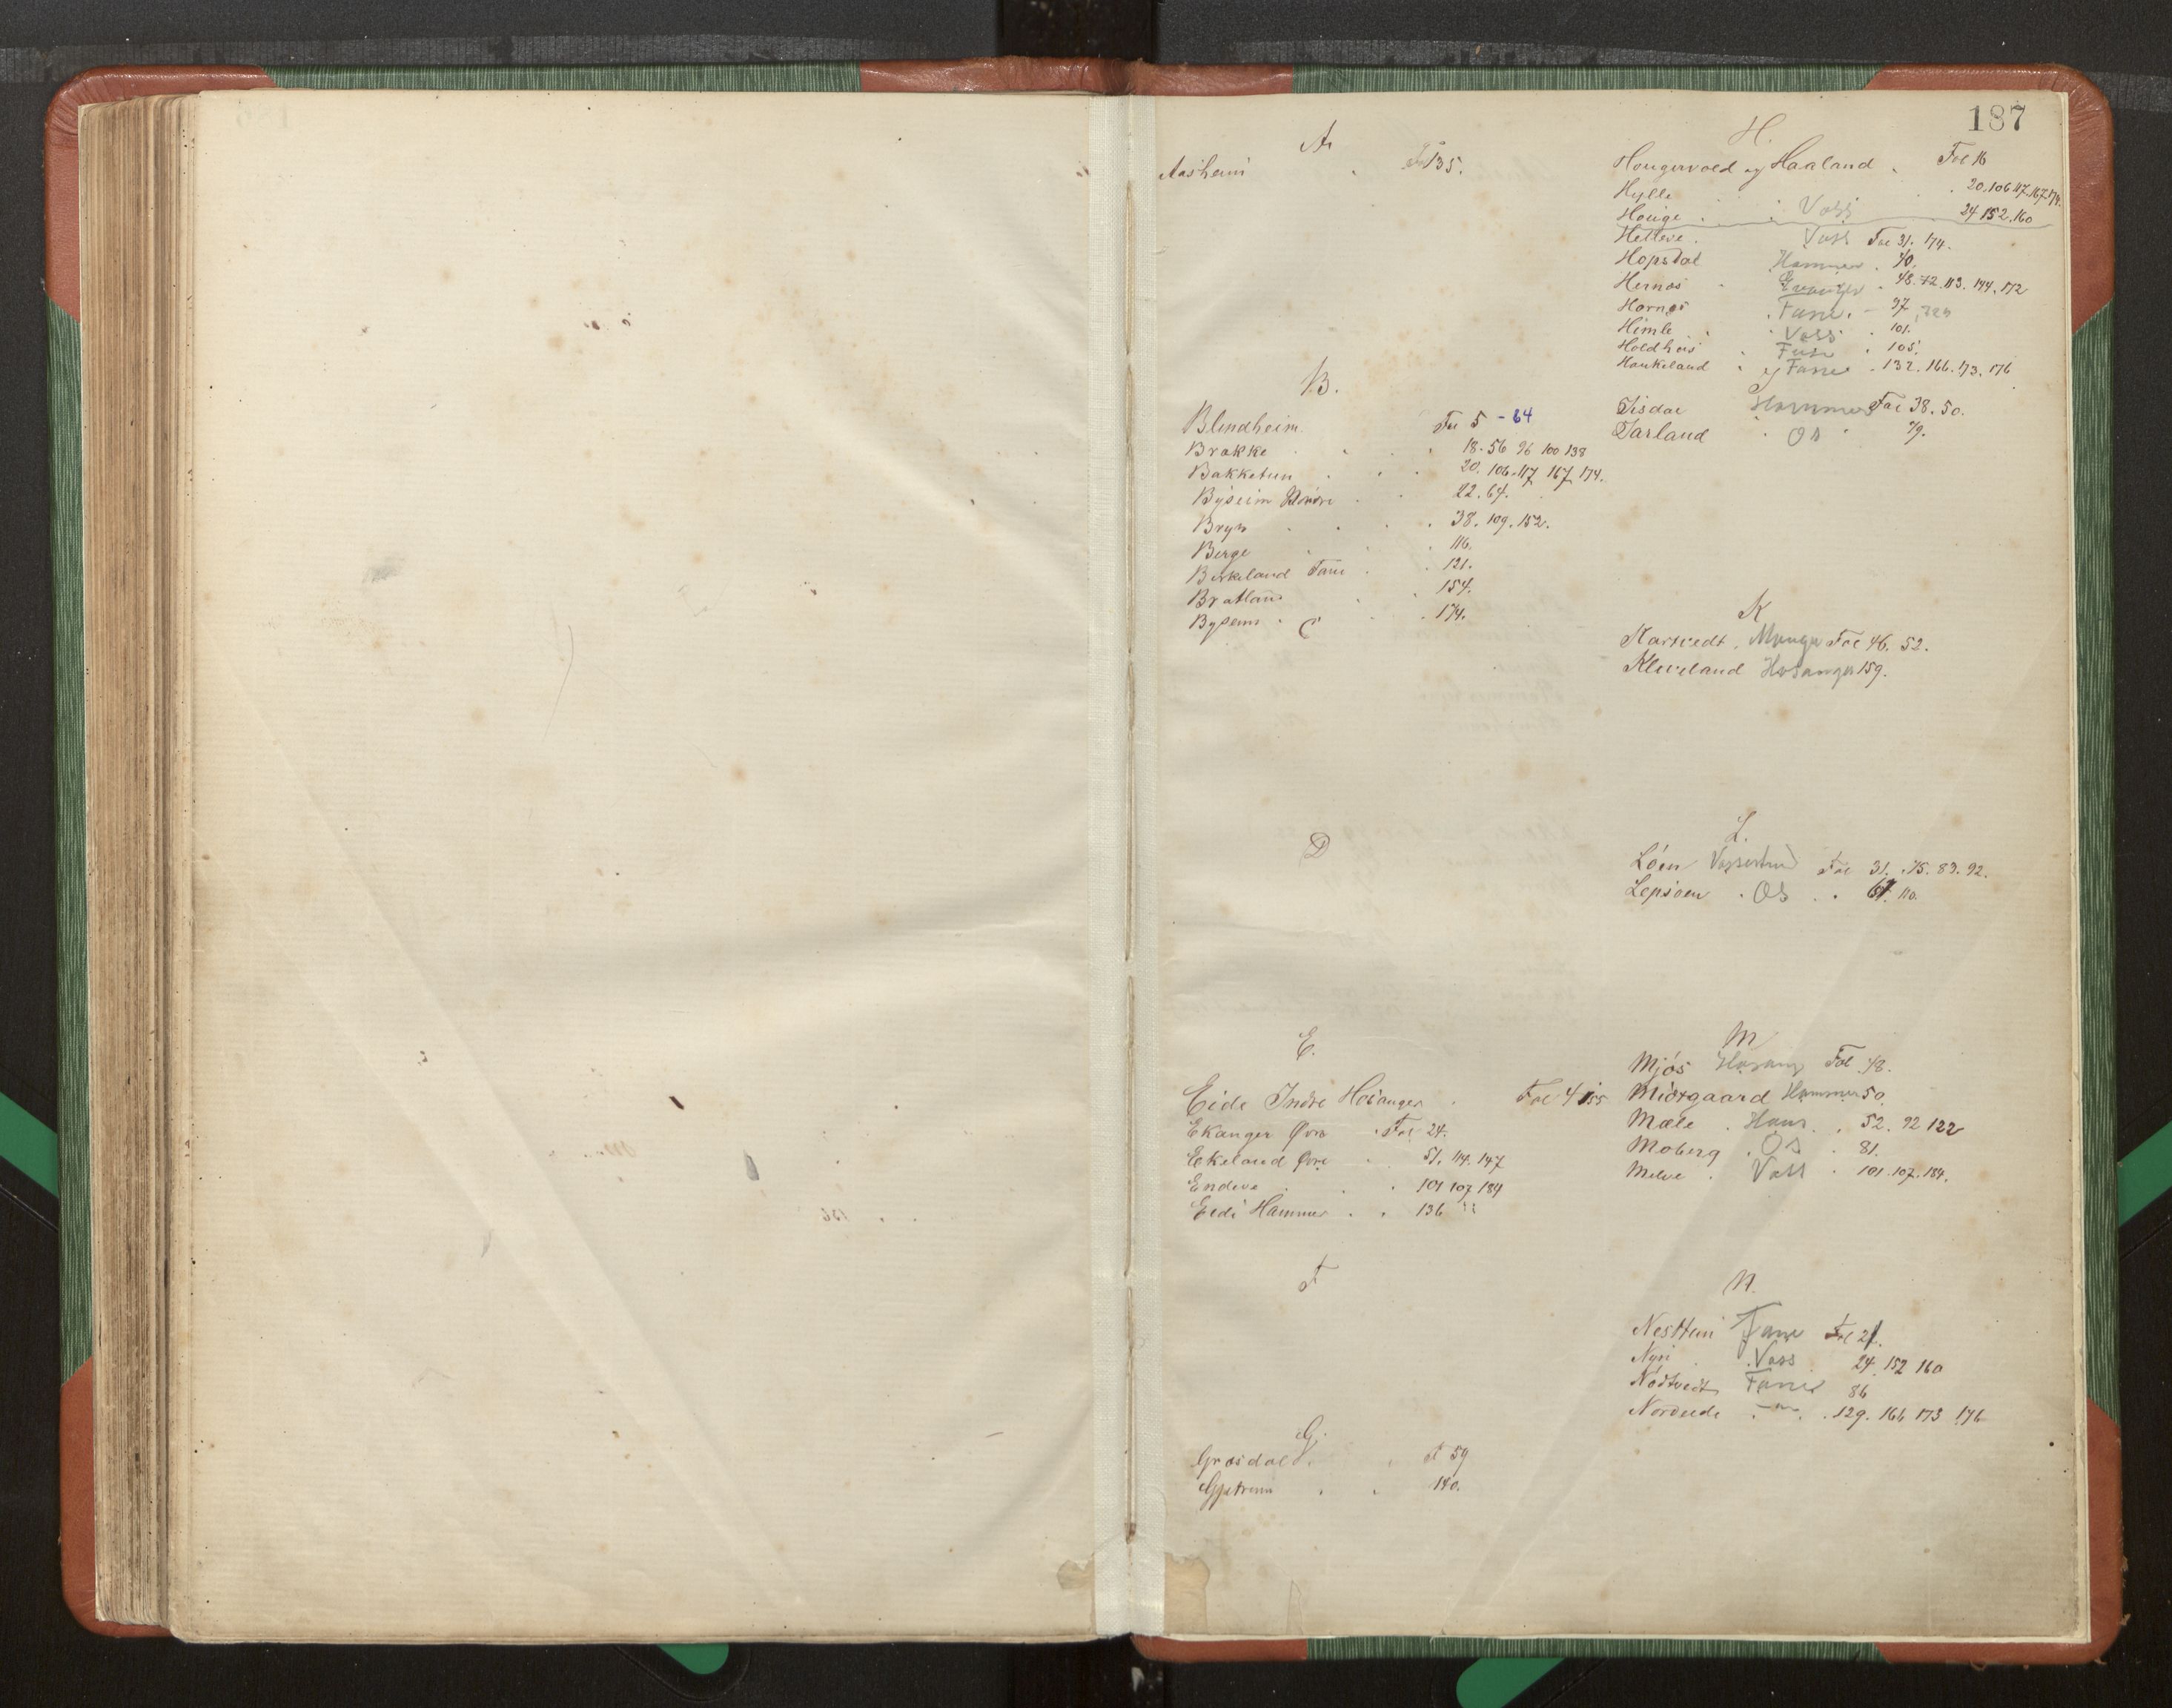 187
A
Aasheim . F 135.
B.
Blindheim Fol 5 - 64
Brække . . . 18. 56 96 100 138
Bakketun . . . 20. 106. 117 167 174.
Byseim . . 22. 64.
Bryn . . . . 38. 109. 152.
Berge . . 116.
Birkeland Fane . . 121.
Bratland . . 154.
Byseim . . 174.
C
D
E.
Eide Indre Hosanger . Fol 4 155
Ekanger Øvre . Fol 24.
Ekeland Øvre . 51. 114. 147
Endeve . . . 101 107 184
Eide Hammer . . 136
F
G.
Græsdal . . F 59
Gjetrem . . 140.
H.
Hougervold og Haaland . Fol 16
Hylle . 20. 106. 117. 167. 174.
Houge . . Voss 24 152. 160
Helleve . Voss Fol 31. 174.
Hopsdal Hammer . 40.
Hernæs . . 48. 72. 113. 144. 172
Hornæs . Fane . - 97
Himle . . . Voss . 101.
Holdhus . Fuse . 105.
Haukeland . Fane . 132. 166. 173. 176
Isdal Hammer Fol 38. 50.
Iarland . Os . 79.
K
Kartvedt . Manger Fol 46. 52.
Kleveland Hosanger 159.
L.
Løen Vossestrand Fol 31. 75. 83. 92.
Lepsøen . Os . . 61. 110.
M
Mjøs Hosang Fol 48.
Midtgaard Hammer 50.
Mæle . Ham . . 52. 92 122
Moberg . Os . 81.
Melve . Voss . 101. 107. 184.
N.
Nesttun Fane Fol 21.
Nyre . . Voss . 24. 152 160
Nødtvedt Fane 86
Nordeide . -"- . . 129. 166 173 176